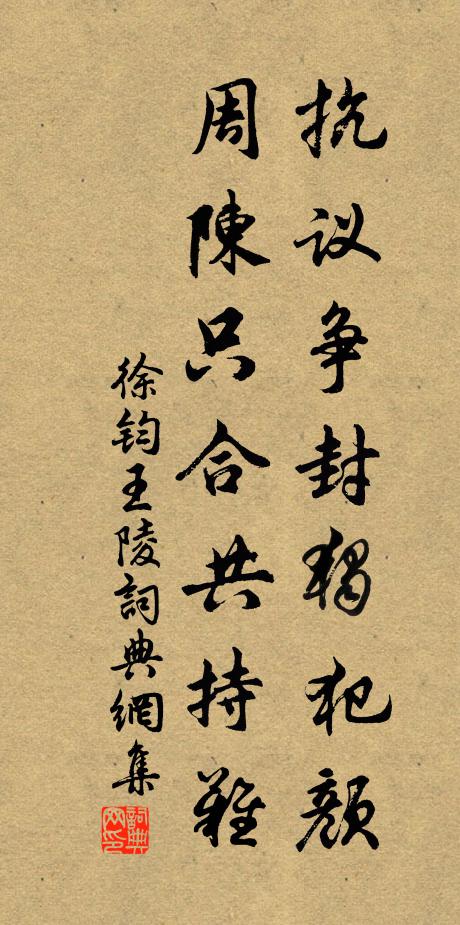 抗议争封獨犯顔
周陳只合共持難
徐钧王陵詞典網集
詞典网印